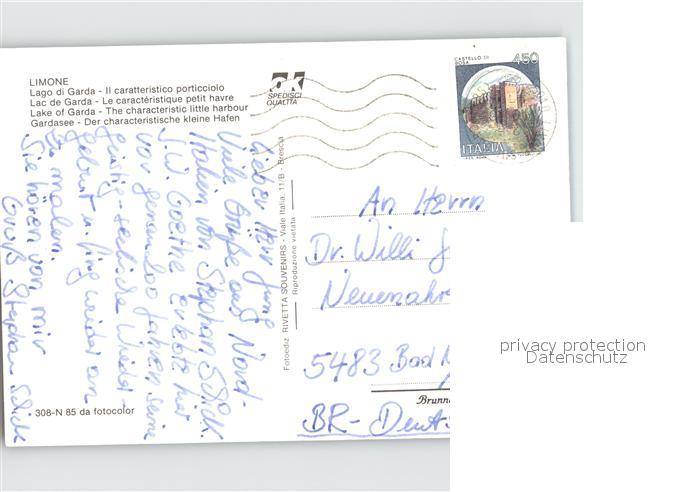 LIMONE
Lago di Garda - Il caratteristico porticciolo
Lac de Garda - Le caractéristique petit havre
Lake of Garda - The characteristic little harbour
Gardasee - Der characteristische kleine Hafen
SPEDISCI
QUALITÀ
CASTELLO DI
450
ITALIA
Lieber Herr
Viele Grüße aus Nord-
Italien von Stephan Schick.
J.W. Goethe erlebte hier
vor genau 200 Jahren seine
geistig-seelische Wieder-
geburt u. fing wieder an
zu malen.
Sie hören von mir
Gruß Stephan Schick
308-N 85 da fotocolor
Fotoediz. RIVETTA SOUVENIRS - Viale Italia, 11/B - Brescia
Riproduzione vietata
An Herrn
Dr. Willi
5483 Bad
BR-
privacy protection
Datenschutz